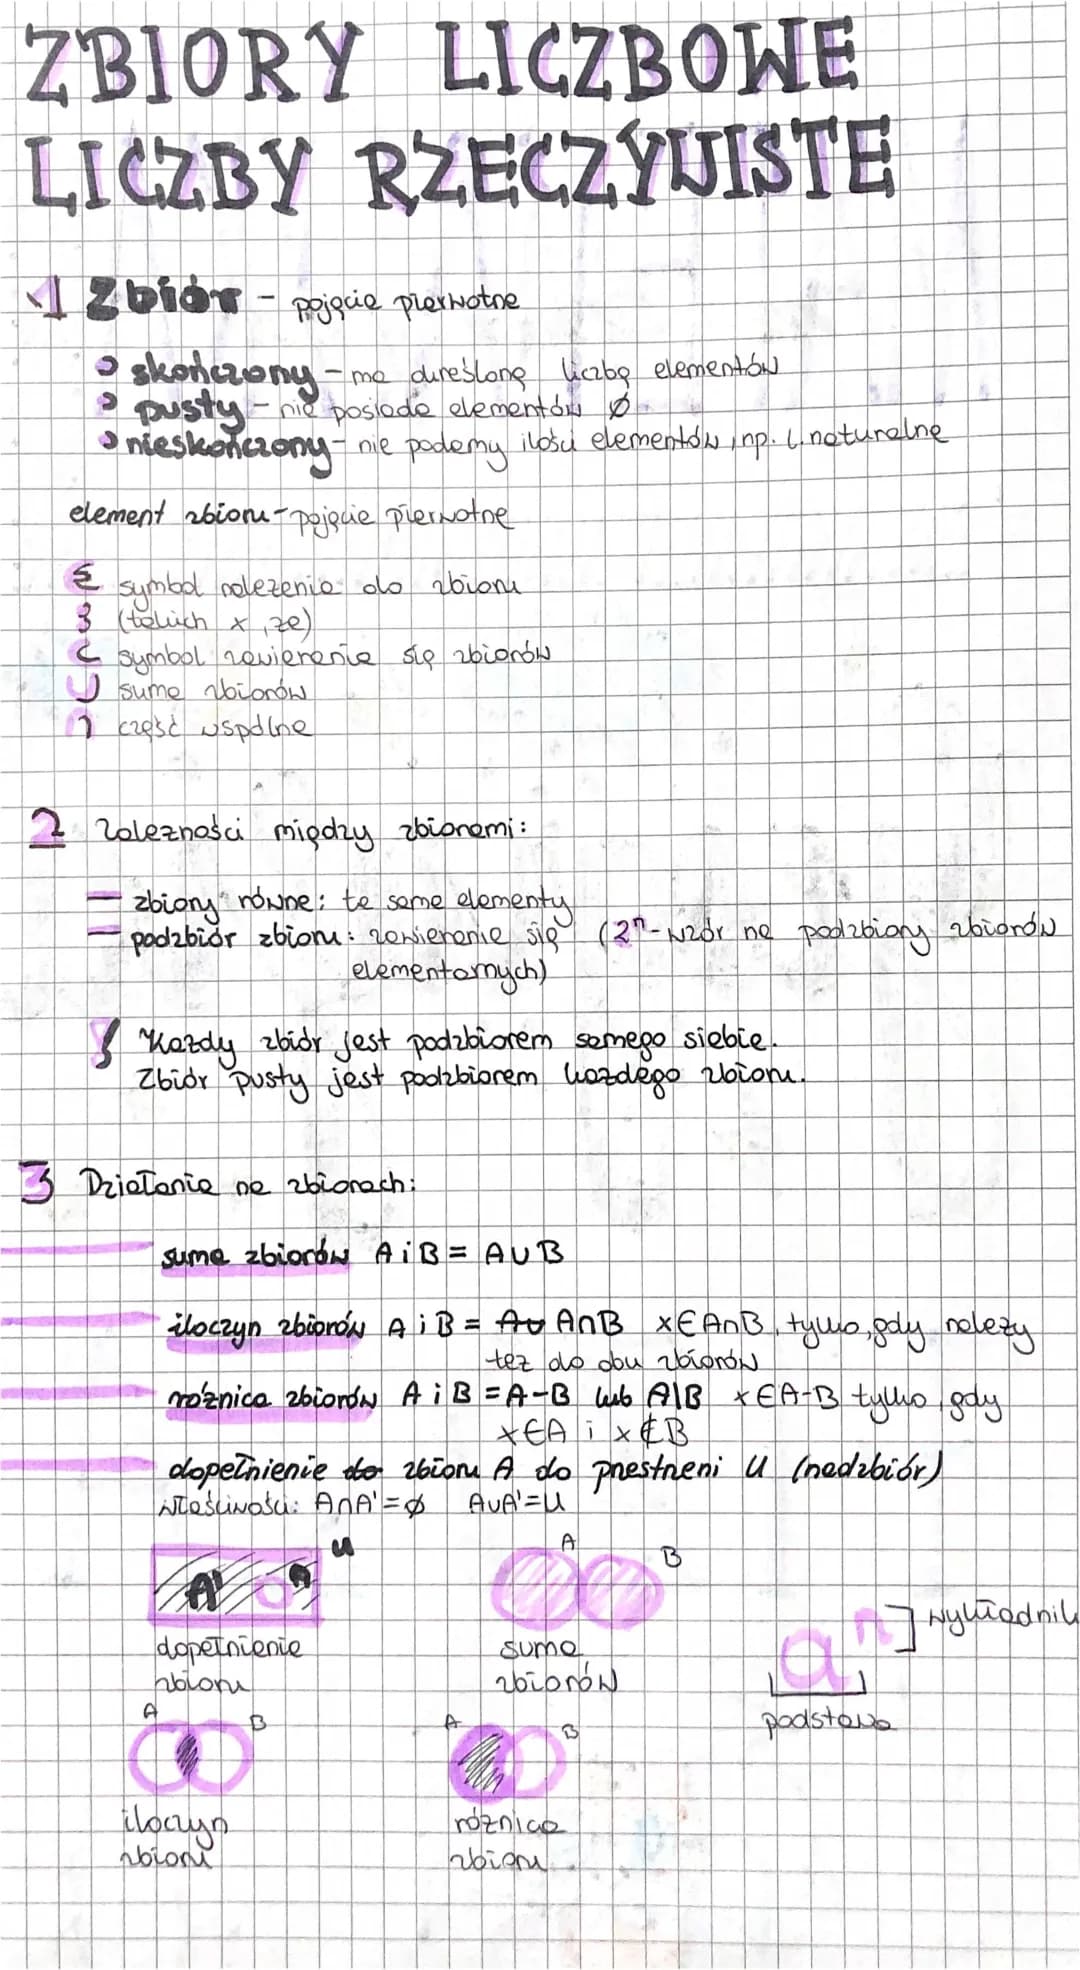 ZBIORY LICZBOWE
LICZBY RZECZYWISTE
1 Zbiór - pojęcie pierwotne
skończony - ma określoną liczbę elementów
pusty - nie posiada elementów Ø
nieskończony - nie podamy ilości elementów, np. l. naturalne
element zbioru - pojęcie pierwotne
∈ symbol należenia do zbioru
∃ (takich x, że)
⊂ symbol zawierania się zbiorów
∪ suma zbiorów
∩ część wspólna
2 Zależności między zbiorami:
zbiory równe: te same elementy
podzbiór zbioru: zawieranie się (2ⁿ - wzór na podzbiory zbiorów
elementarnych)
! Każdy zbiór jest podzbiorem samego siebie.
Zbiór pusty jest podzbiorem każdego zbioru.
3 Działania na zbiorach:
suma zbiorów A i B = A∪B
iloczyn zbiorów A i B = A∪ A∩B x∈A∩B, tylko, gdy należy
też do obu zbiorów
różnica zbiorów A i B = A-B lub A\B x∈A-B tylko, gdy
x∈A i x∉B
dopełnienie do zbioru A do przestrzeni U (nadzbiór)
właściwości: A∩A'=Ø A∪A'=U
U
A' A
A B
dopełnienie
zbioru
suma
zbiorów
aⁿ wykładnik
podstawa
A B
iloczyn
zbioru
A B
różnica
zbioru